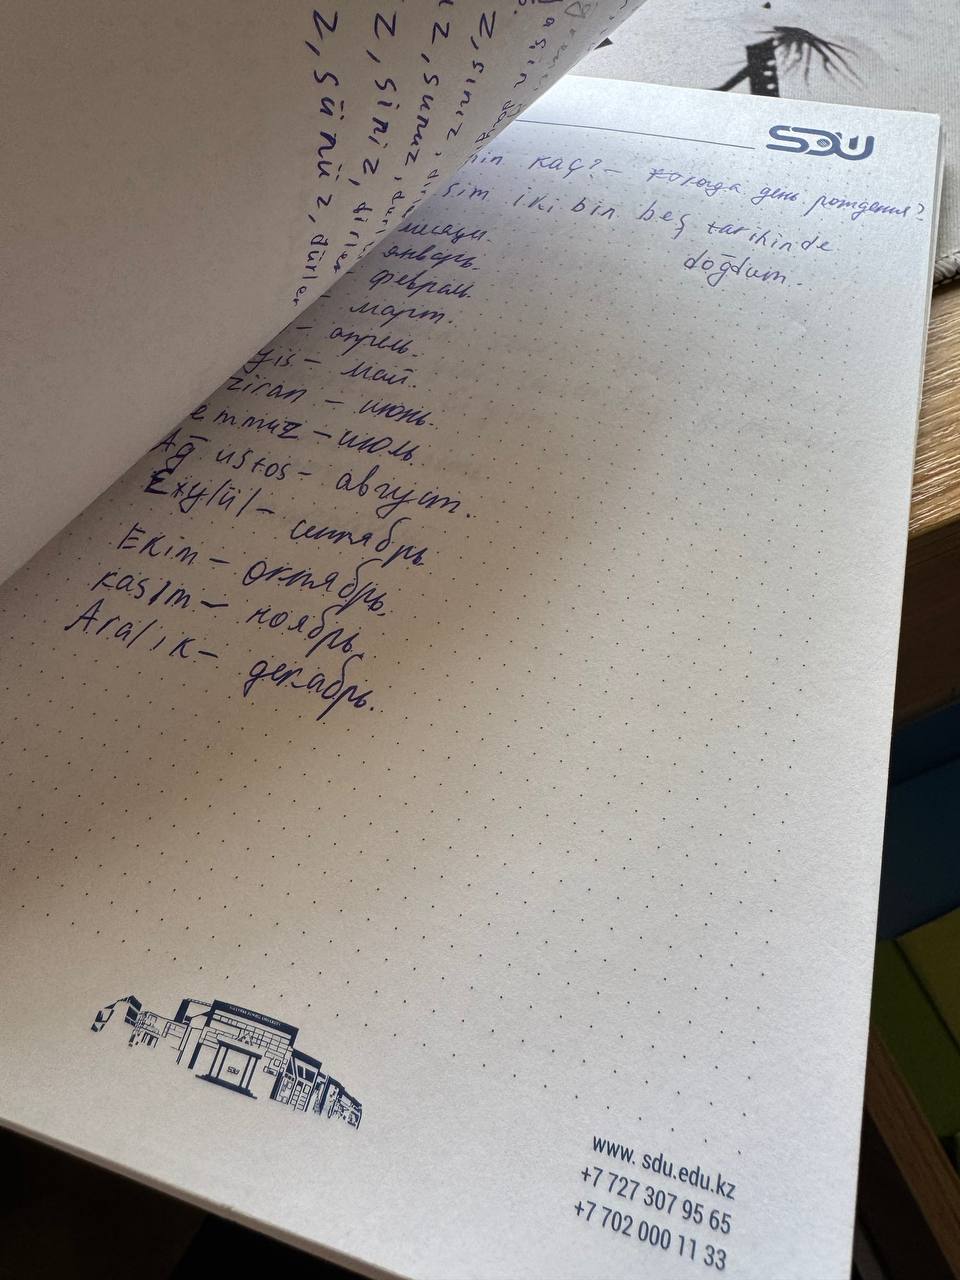 z, sünüz, dürler
z, siniz, dirler
z, sunuz,
z, siniz,
SDU
kaç? – когда день рождения?
iki bin beş tarihinde
doğdum.
месяцы.
январь.
– февраль.
– март.
– апрель.
yis – май.
ziran – июнь.
emmuz – июль.
Ağustos – август.
Exylül – сентябрь.
Ekim – октябрь.
kasım – ноябрь.
Aralık – декабрь.
SDU
www. sdu.edu.kz
+7 727 307 95 65
+7 702 000 11 33